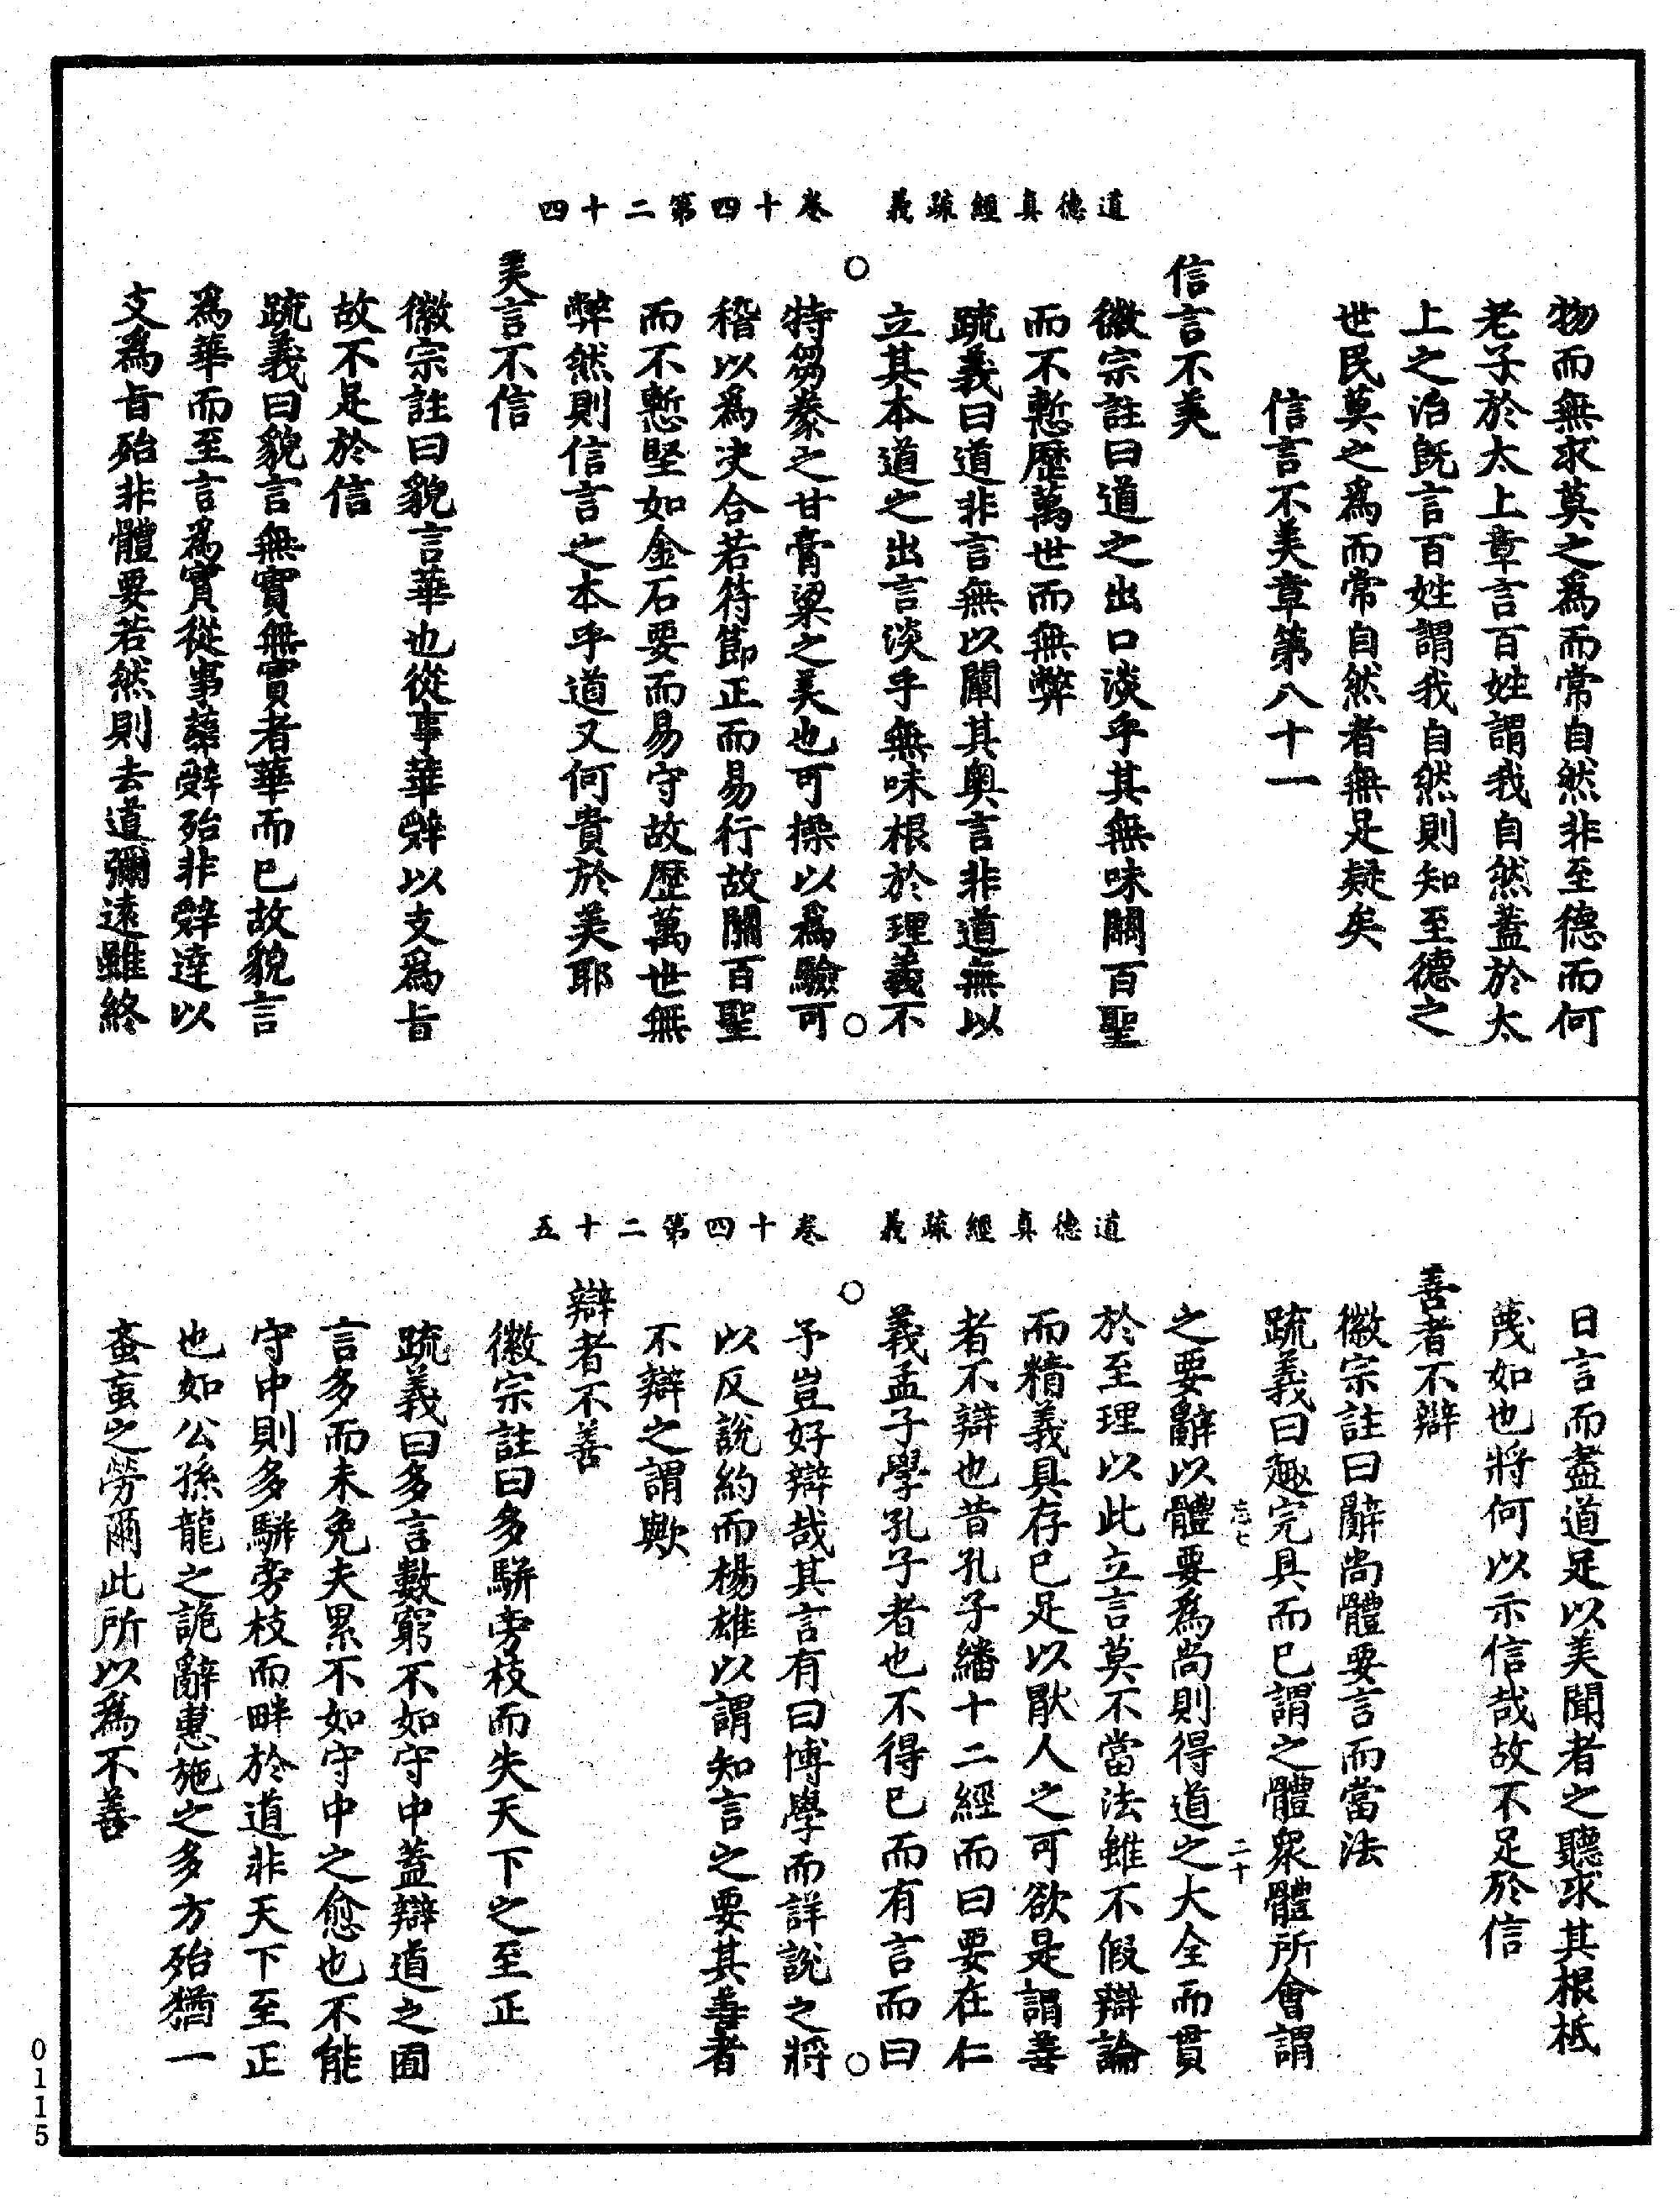 道德真經疏義　卷十四第二十四
物而無求莫之爲而常自然非至德而何
老子於太上章言百姓謂我自然蓋於太
上之治旣言百姓謂我自然則知至德之
世民莫之爲而常自然者無足疑矣
信言不美章第八十一
信言不美
徽宗註曰道之出口淡乎其無味關百聖
而不慙歷萬世而無弊
疏義曰道非言無以闡其奧言非道無以
立其本道之出言淡乎無味根於理義不
特芻豢之甘膏粱之美也可操以爲驗可
稽以爲决合若符節正而易行故關百聖
而不慙堅如金石要而易守故歷萬世無
弊然則信言之本乎道又何貴於美耶
美言不信
徽宗註曰貌言華也從事華辭以支爲旨
故不足於信
疏義曰貌言無實無實者華而已故貌言
爲華而至言爲實從事華辭殆非辭達以
支爲旨殆非體要若然則去道彌遠雖終
道德真經疏義　卷十四第二十五
日言而盡道足以美聞者之聽求其根柢
蔑如也將何以示信哉故不足於信
善者不辯
徽宗註曰辭尚體要言而當法
疏義曰趣完具而已謂之體衆體所會謂
忘七　二十
之要辭以體要爲尚則得道之大全而貫
於至理以此立言莫不當法雖不假辯論
而精義具存已足以厭人之可欲是謂善
者不辯也昔孔子繙十二經而曰要在仁
義孟子學孔子者也不得已而有言而曰
予豈好辯哉其言有曰博學而詳說之將
以反說約而楊雄以謂知言之要其善者
不辯之謂歟
辯者不善
徽宗註曰多駢旁枝而失天下之至正
疏義曰多言數窮不如守中蓋辯道之囿
言多而未免夫累不如守中之愈也不能
守中則多駢旁枝而畔於道非天下至正
也如公孫龍之詭辭惠施之多方殆猶一
蚉䖟之勞爾此所以爲不善
0115